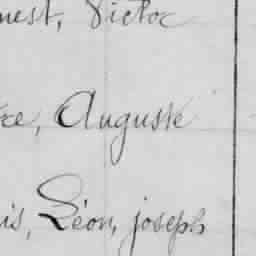 nest, Victor
re, Auguste
is, Léon, joseph